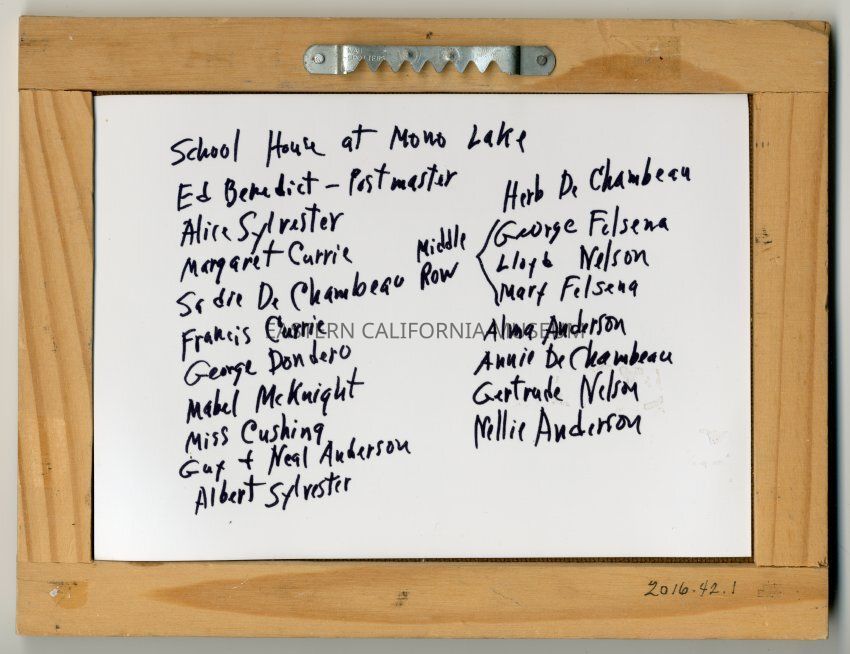 School House at Mono Lake
Ed Benedict - Postmaster
Alice Sylvester
Margaret Currie
Sadie De Chambeau
Francis Currie
George Dondero
Mabel McKnight
Miss Cushing
Guy + Neal Anderson
Albert Sylvester
Herb De Chambeau
Middle Row
George Felsena
Lloyd Nelson
Mary Felsena
Alma Anderson
Annie De Chambeau
Gertrude Nelson
Nellie Anderson
EASTERN CALIFORNIA MUSEUM
2016.42.1